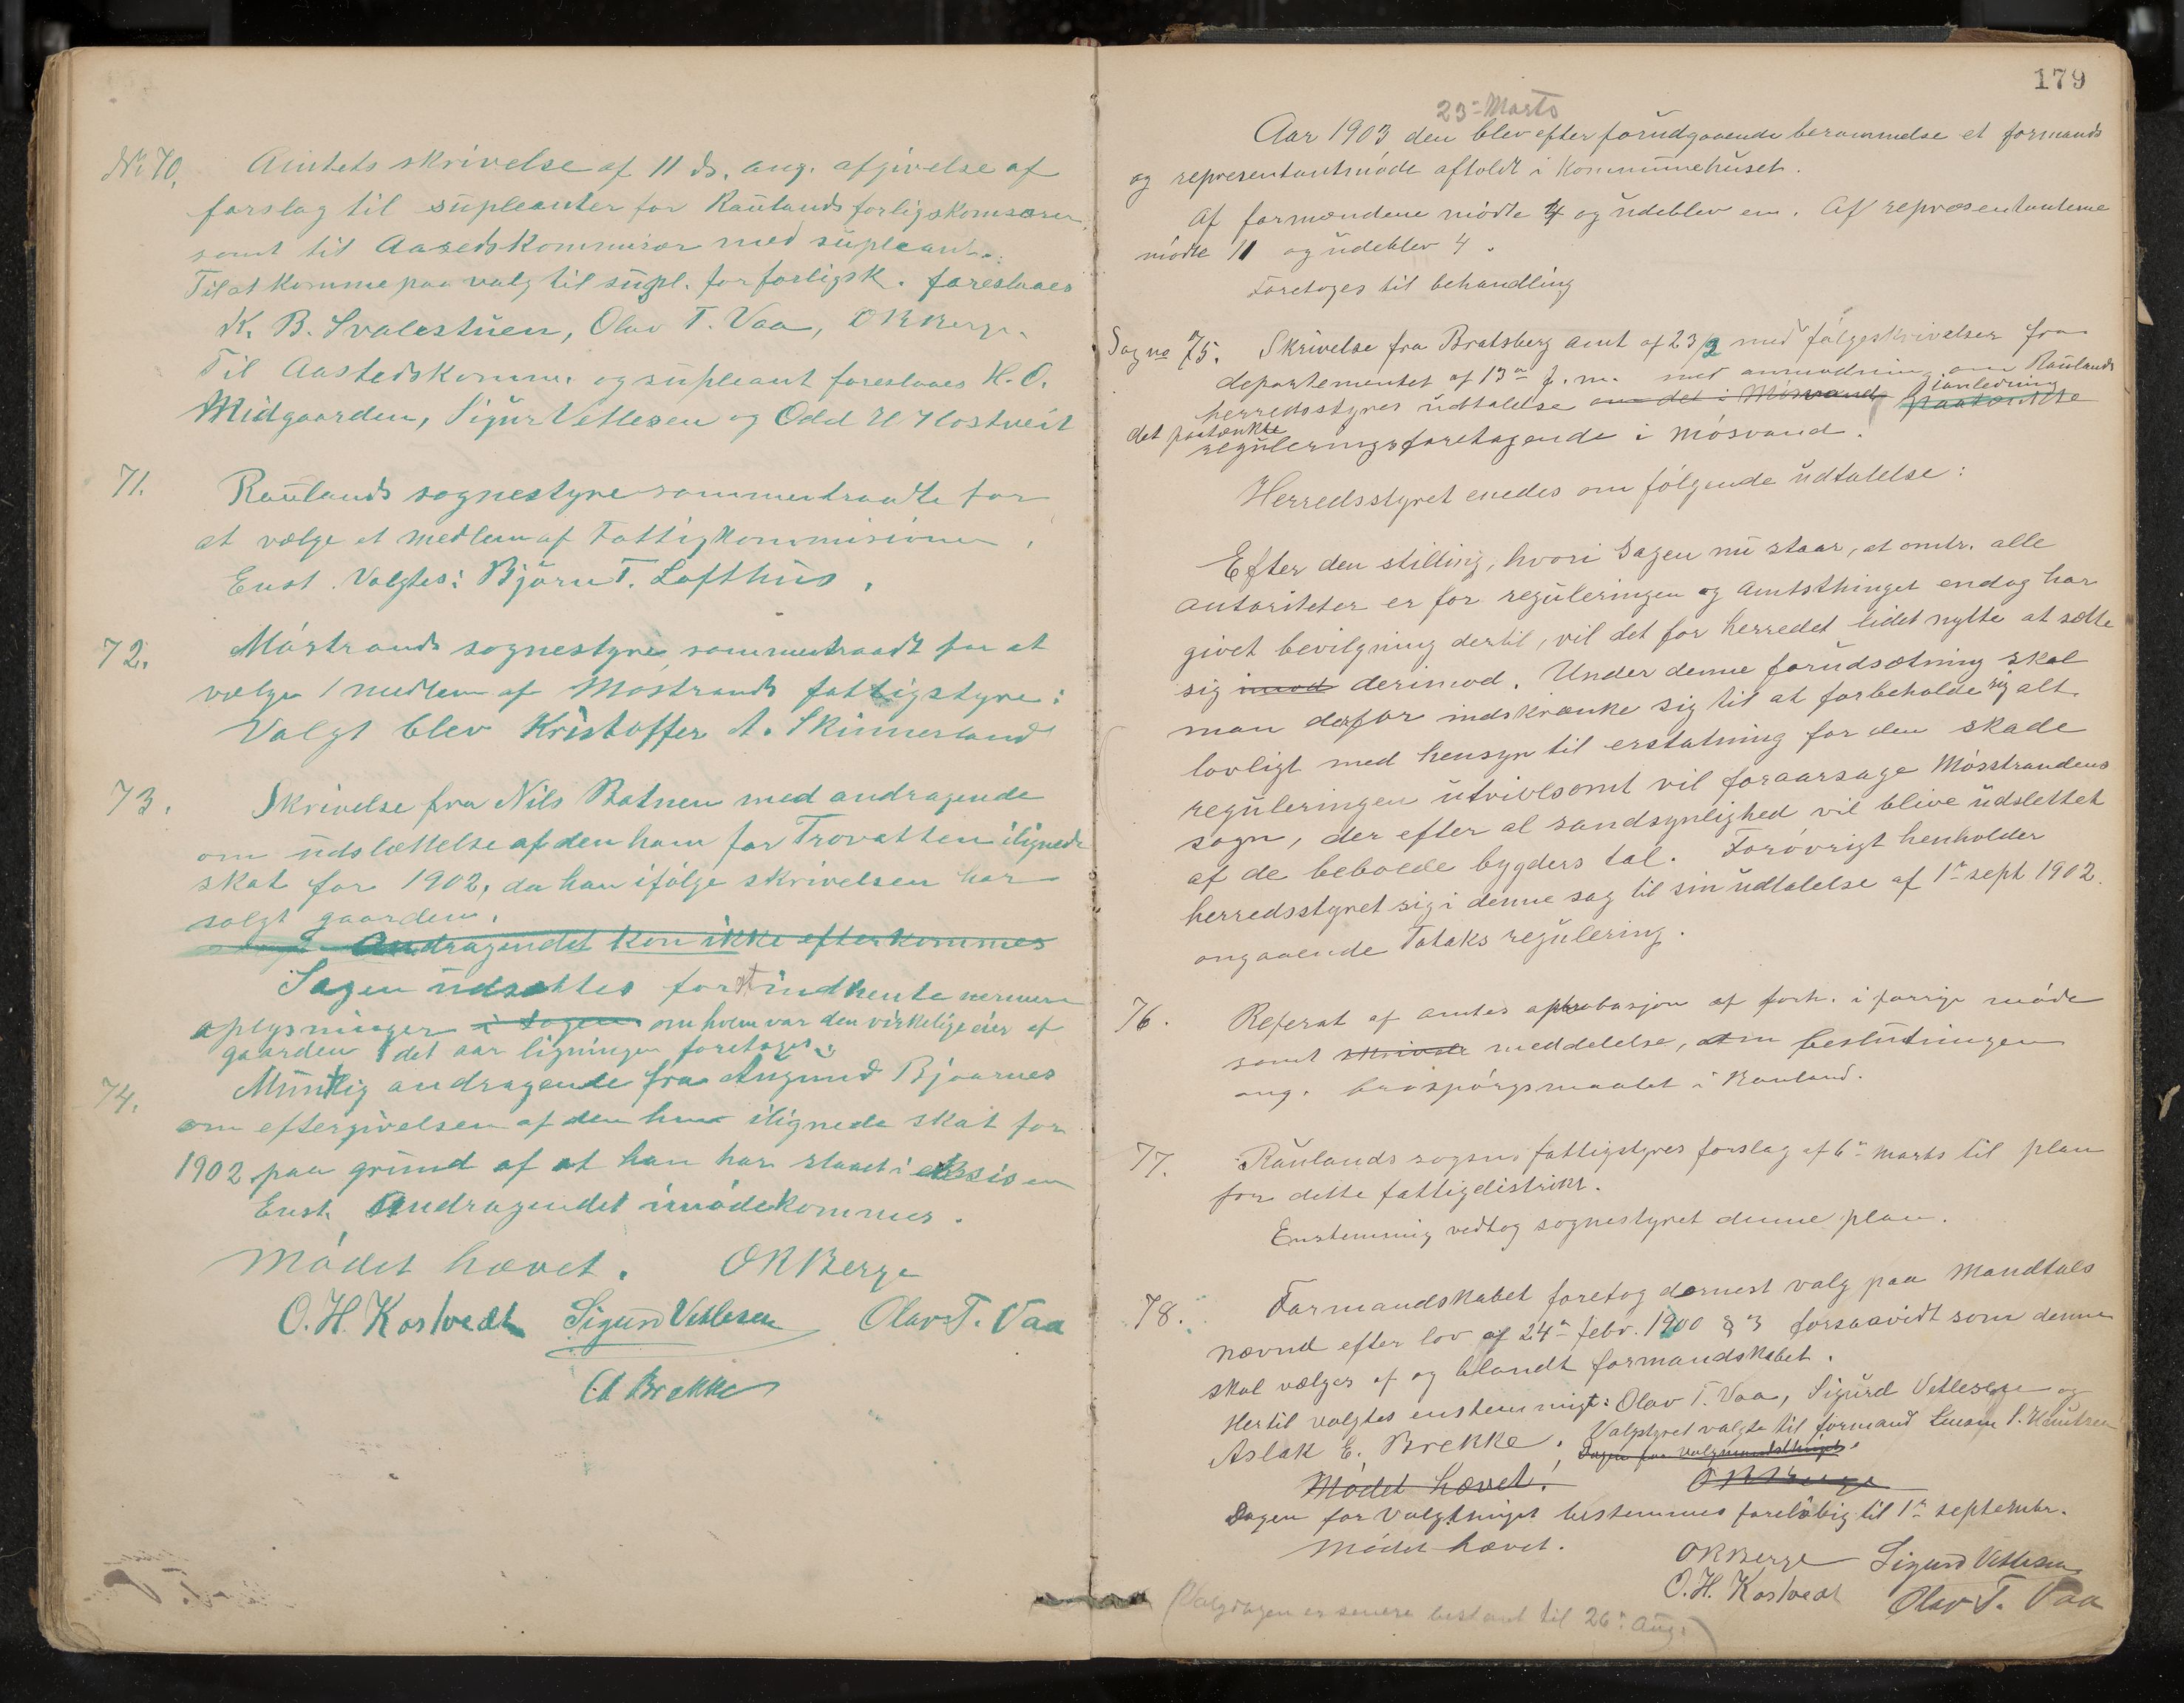 No 70. Amtets skrivelse af 11 ds. ang. afgivelse af
forslag til supleanter for Raulands forligskomsærer
samt til Aasedskommisær med supleant.
Til at komme paa valg til supl. for forligsk. foreslaaes
K. B. Svalestuen, Olav T. Vaa, O R Berge
Til Aastedskomm. og supleant foreslaaes H. O.
Midgaarden, Sigur Vetlesen og Odd H Kostveit
71. Raulands sognestyre sammentraadte for
at vælge et medlem af Fattigkommisionen,
Enst. Valgtes: Bjørn T. Lofthus.
72. Møstrands sognestyre sammentraadt for at
vælge 1 medlem af Møstrands fattigstyre:
Valgt blev Kristoffer A. Skinnerland
73. Skrivelse fra Nils Batnen med andragende
om udslettelse af den ham for Trovatten ilignede
skat for 1902, da han ifølge skrivelsen har
solgt gaarden.
Andragendet kan ikke efterkommes
Sagen udsættes for at indhente nermere
oplysninger i sagen om hvem var den virkelige eier af
gaarden det aar ligningen foretoges.
74. Muntlig andragende fra Angund Bjaarnes
om eftergivelsen af den ham ilignede skat for
1902 paa grund af at han har staaet i eksisen
Enst. Andragendet imødekommes.
Mødet hævet. O R Berge
O. H. Kostvedt Sigurd Vetlesen Olav T. Vaa
A Brekke
179
23de Marts
Aar 1903 den blev efter forudgaaende berammelse et formands
og representantmøde afholdt i Kommunehuset.
Af formændene mødte 4 og udeblev en. Af repræsentanterne
mødte 11 og udeblev 4.
Foretoges til behandling
Sag no 75. Skrivelse fra Bratsberg amt af 23/2 med følgeskrivelser fra
departementet af 13de f. m. med anmodning om Raulands
herredsstyres udtalelse om det i Møsvand i anledning paatænkte
det paatænkte reguleringsforetagende i Møsvand.
Herredsstyret enedes om følgende udtalelse:
Efter den stilling, hvori sagen nu staar, at omtr. alle
autoriteter er for reguleringen og Amtsthinget endog har
givet bevilgning dertil, vil det for herredet lidet nytte at sætte
sig imod derimod. Under denne forudsætning skal
man derfor indskrænke sig til at forbeholde sig alt
lovligt med hensyn til erstatning for den skade
reguleringen utvivlsomt vil foraarsage Møsstrandens
sogn, der efter al sandsynlighed vil blive udslettet
af de beboede bygders tal. Forøvrigt henholder
herredsstyret sig i denne sag til sin udtalelse af 1ste sept 1902.
angaaende Totaks regulering.
76. Referat af amtes aprobasjon af forh. i forrige møde
samt skrivele meddelelse, om beslutningen
ang. baaspørgsmaalet i Rauland.
77. Raulands sogns fattigstyres forslag af 6te marts til plan
for dette fattigdistrikt.
Enstemmig vedtog sognestyret denne plan.
78. Formandskabet foretog dernest valg paa Mandtals
nævnd efter lov af 24de febr. 1900 § 3 forsaavidt som denne
skal vælges af og blandt formandskabet.
Hertil valgtes enstemmigt: Olav T. Vaa, Sigurd Vetlesen og
Aslak E. Brekke. Valgstyret valgte til formand S. Knutsen
Dagen for valgmandsthinget
Mødet hævet. O R Berge
Dagen for valgtinget bestemmes foreløbig til 1ste septembr.
Mødet hævet.
O R Berge Sigurd Vetlesen
O. H. Kostvedt Olav T. Vaa
(Valgdagen er senere bestemt til 26de Aug.)